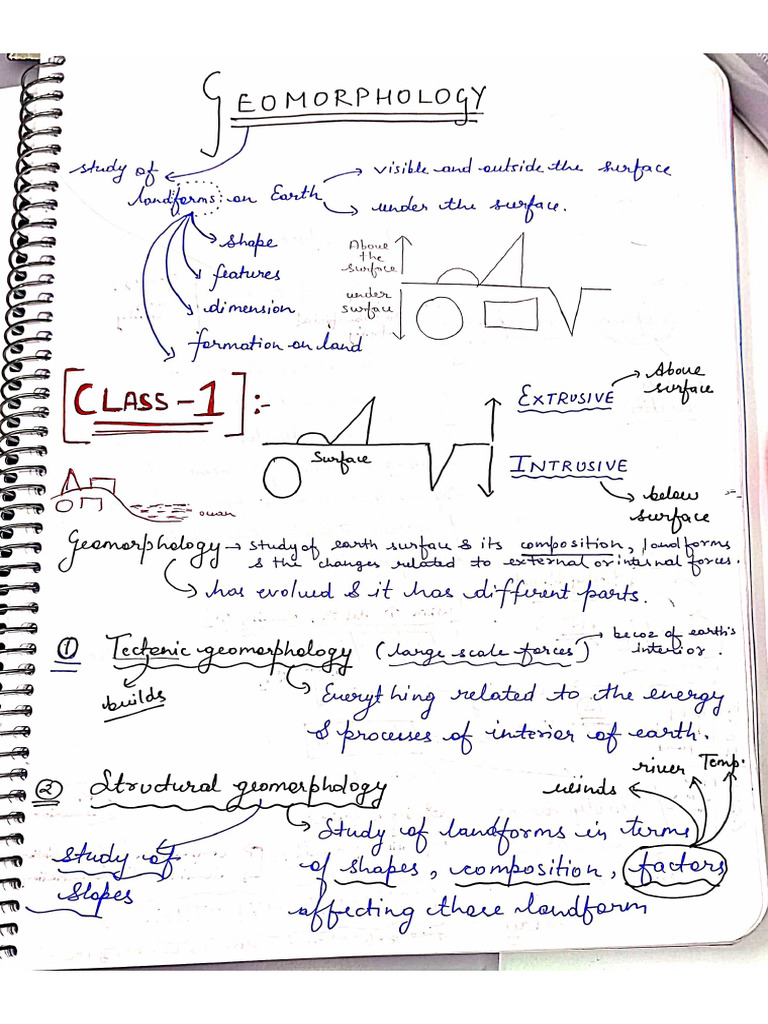 GEOMORPHOLOGY
study of
landforms on Earth
visible and outside the surface
under the surface.
shape
features
dimension
formation on land
Above
the
surface
under
surface
[CLASS-1]:-
Surface
EXTRUSIVE
Above
surface
INTRUSIVE
below
surface
ocean
Geomorphology → study of earth surface & its composition, landforms
& the changes related to external or internal forces.
has evolved & it has different parts.
① Tectenic geomorphology (large scale forces)
becoz of earth's
interior.
builds
Everything related to the energy
& processes of interior of earth.
② Structural geomorphology
winds
river
Temp.
study of
slopes
Study of landforms in terms
of shapes, composition, factors
affecting those landform